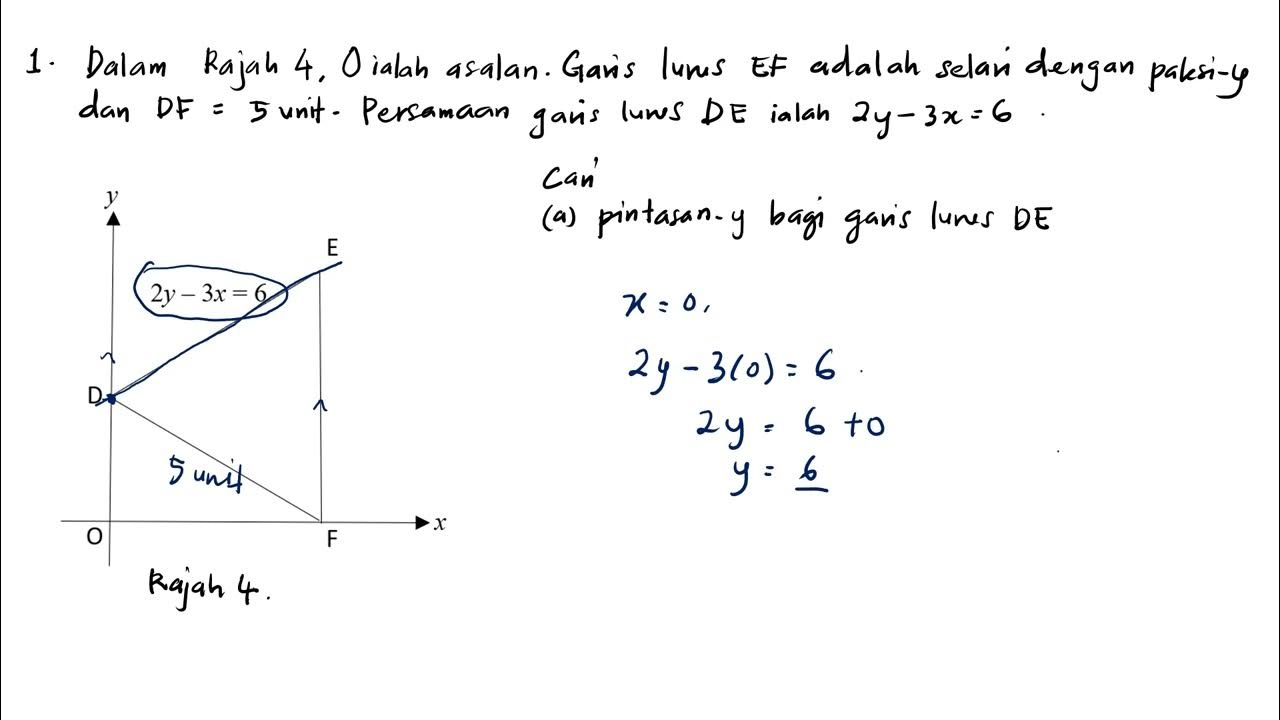 1. Dalam Rajah 4, O ialah asalan. Garis lurus EF adalah selari dengan paksi-y
dan DF = 5 unit. Persamaan garis lurus DE ialah 2y - 3x = 6.
Cari
(a) pintasan-y bagi garis lurus DE
y
E
2y – 3x = 6
x = 0,
2y - 3(0) = 6
D
2y = 6 + 0
5 unit
y = 6
x
O
F
Rajah 4.